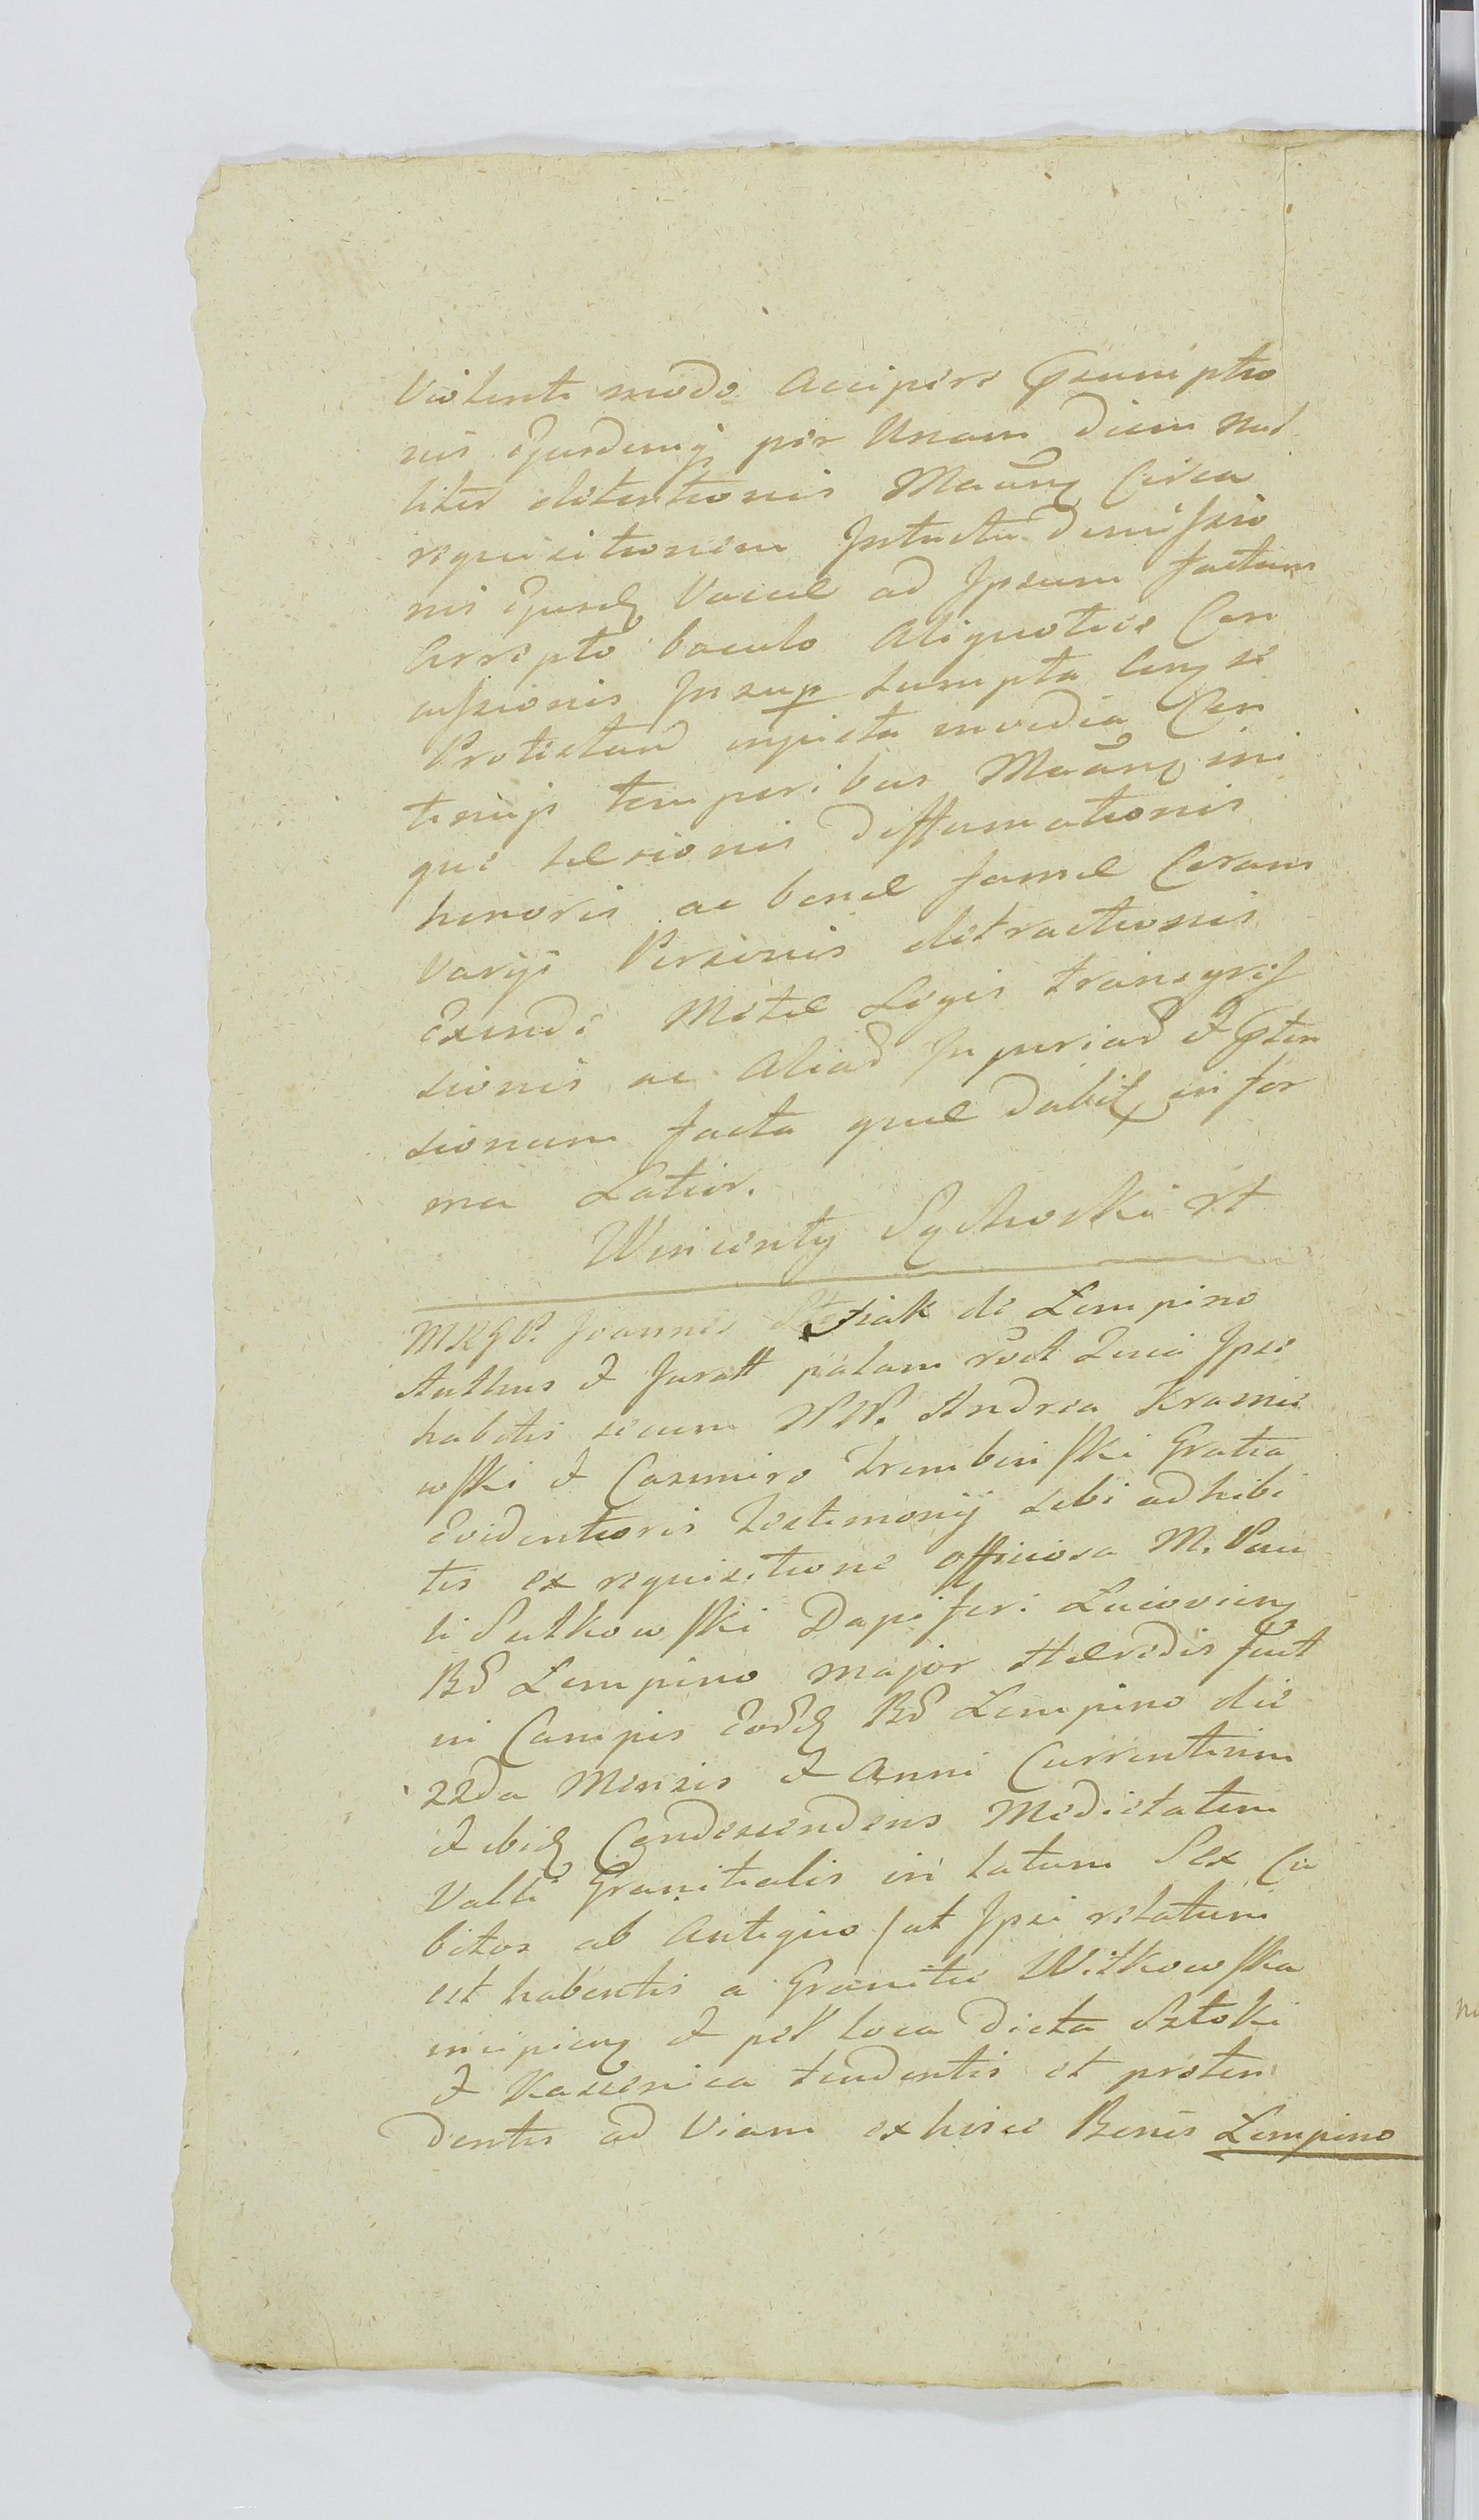 Violenti modo accipere Psumptio
nis Ejusdemq per Unam diem nul
liter detentionis Maãnq Circa
requisitionem Intuetu dimissio
nis Ejusdq Vaccæ ad Ipsum factam
Arrepto baculo Aliquoties Con
cussionis Insup sumpta Conq se
Protestand injusta invidia Con
tinuis temporibus Maãnq ini
que Læsionis diffamationis
honoris ac bonæ famæ Coram
Varijs Personis detractionis
Exinde Metæ Legis transgres
sionis ac Aliad Injuriad et Psten
sionum facta quæ dabitq in for
ma Latior.
Wincenty Sychoski rt
MRGP. Joannes Stasiak de Lempino
Authus et Juratt palam rvct Quia Ipse
habitis secum NN. Andrea Kramie
wski et Casimiro Trembinski Gratia
Evidentioris Testimonij sibi adhibi
tis ex requisitione officiosa M. Pau
li Sutkowski Dapiferi Lucovienq
Bd Lempino major Hæredis fuit
in Campis Eordq Bd Lempino die
22da Mensis et Anni Currentium
et ibidq Condescendens Medietatem
Valli Granitialis in latum Sex Cu
bitos ab Antiquo /ut Ipsi relatum
est habentis a Granitie Witkowska
incipienq et per loca dicta Sztoki
et Kaczenica tendentis et proten
dentis ad Viam ex hisce Bonis Lempino